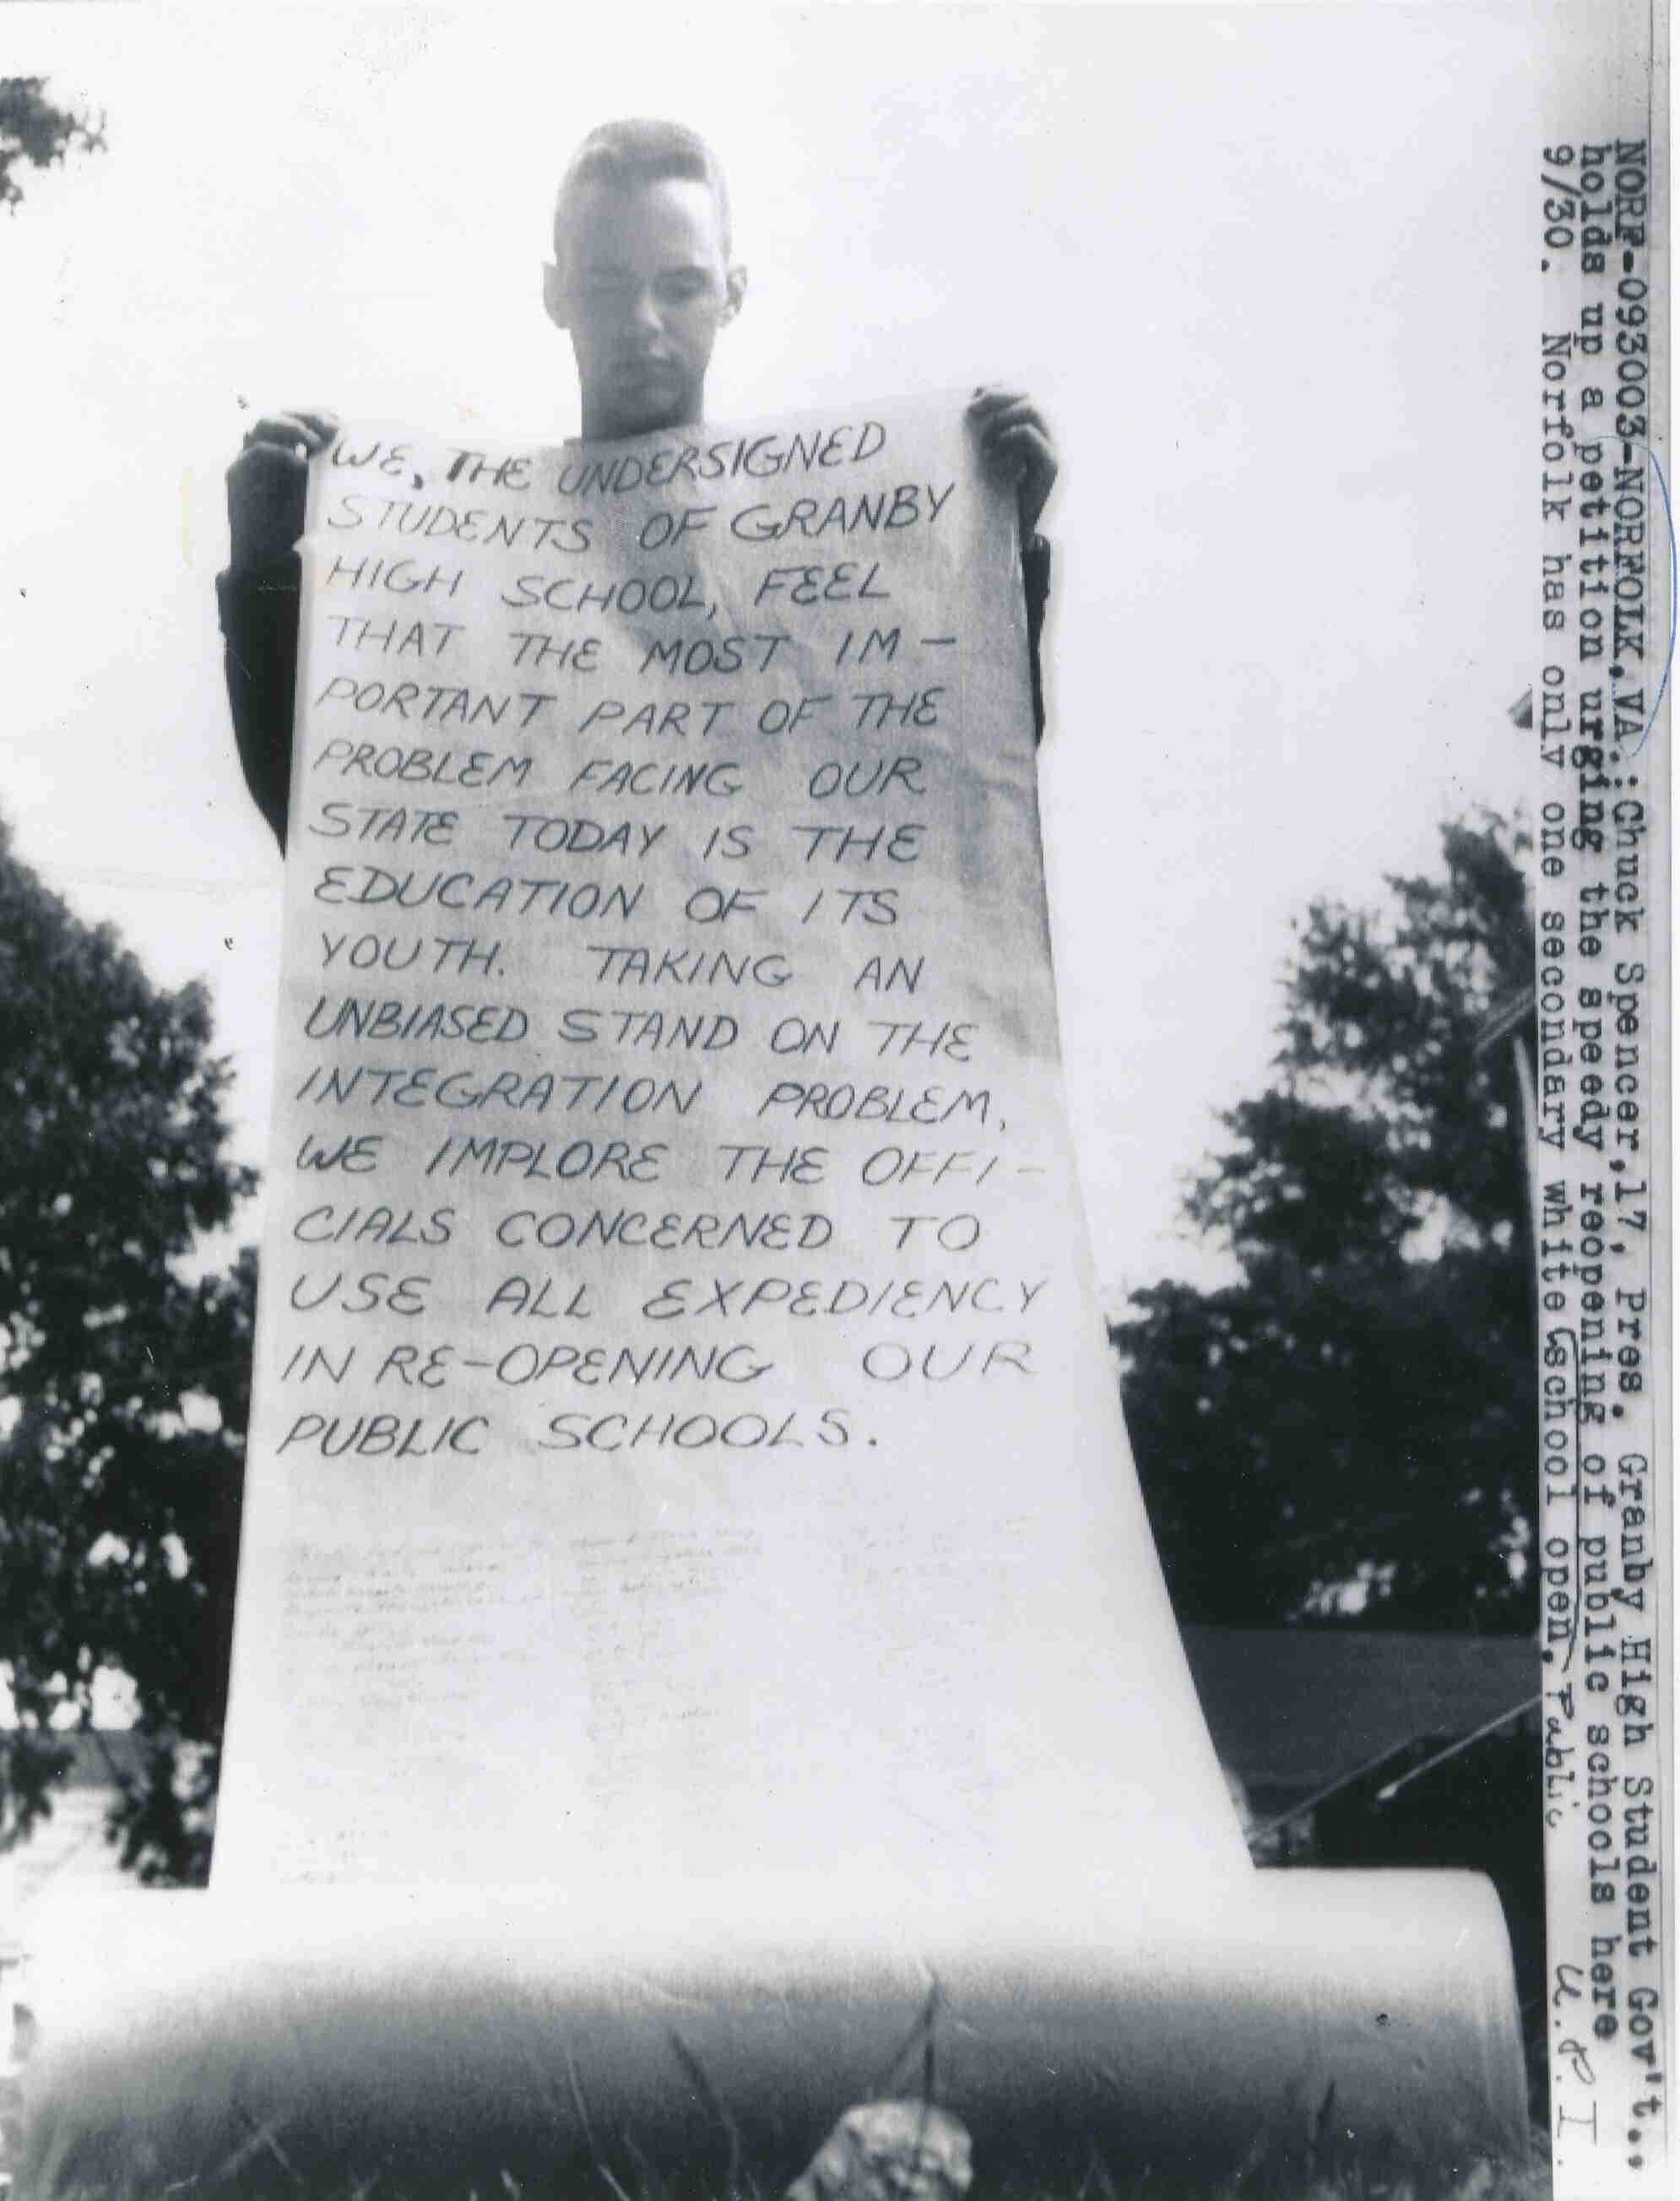 WE, THE UNDERSIGNED
STUDENTS OF GRANBY
HIGH SCHOOL, FEEL
THAT THE MOST IM-
PORTANT PART OF THE
PROBLEM FACING OUR
STATE TODAY IS THE
EDUCATION OF ITS
YOUTH. TAKING AN
UNBIASED STAND ON THE
INTEGRATION PROBLEM,
WE IMPLORE THE OFFI-
CIALS CONCERNED TO
USE ALL EXPEDIENCY
IN RE-OPENING OUR
PUBLIC SCHOOLS.
NORF-093003-NORFOLK,VA.:Chuck Spencer,17, Pres. Granby High Student Gov't..
holds up a petition urging the speedy reopening of public schools here
9/30. Norfolk has only one secondary white school open. Public
U.P.I.